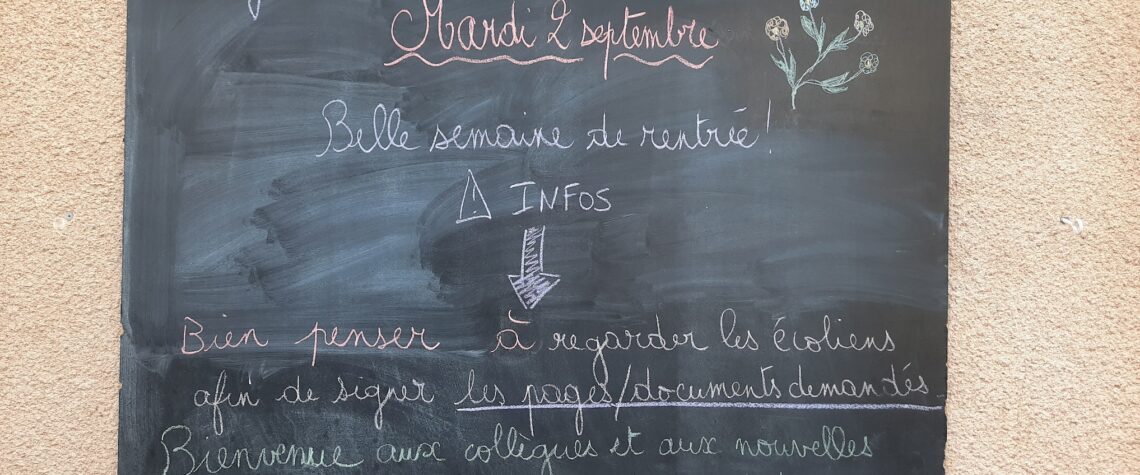 Mardi 2 septembre
Belle semaine de rentrée !
⚠ INFOS
Bien penser à regarder les écoliens
afin de signer les pages/documents demandés
Bienvenue aux collègues et aux nouvelles